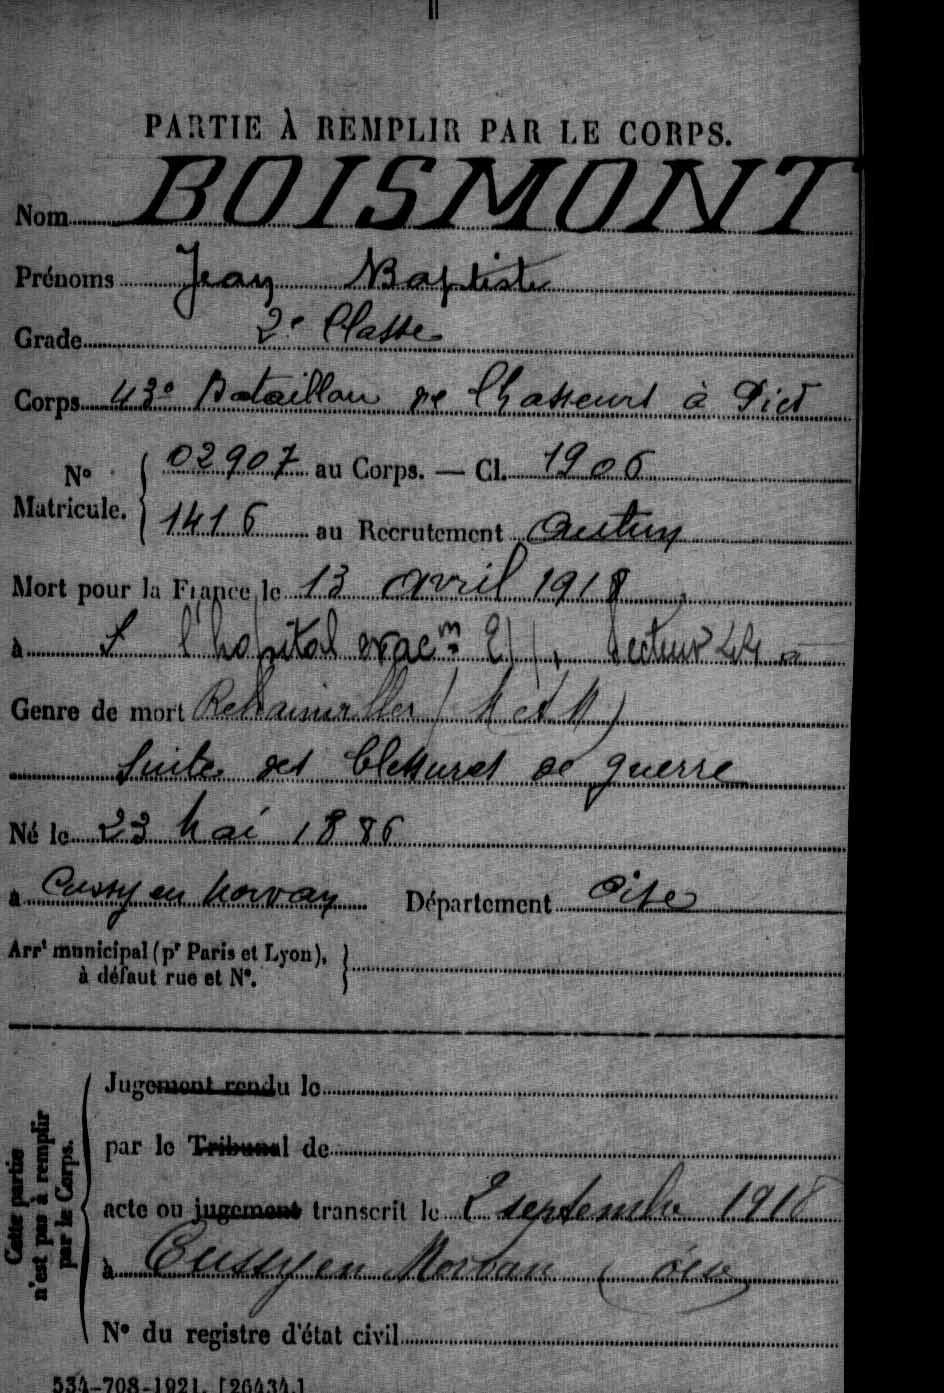 PARTIE À REMPLIR PAR LE CORPS.
Nom BOISMONT
Prénoms Jean Baptiste
Grade 2e Classe
Corps 43e Bataillon de Chasseurs à Pied
No Matricule. { 02907 au Corps. — Cl. 1906
1416 au Recrutement Autun
Mort pour la France le 13 avril 1918
à l'hopital evacn secteur 44 a
Genre de mort Rehainviller (M et M)
Suites des blessures de guerre
Né le 23 Mai 1886
à Cussy en Morvan Département Oise
Arrt municipal (pr Paris et Lyon), à défaut rue et No. }
Cette partie n'est pas à remplir par le Corps.
Jugement rendu le
par le Tribunal de
acte ou jugement transcrit le 2 septembre 1918
à Cussy en Morvan (Oise)
No du registre d'état civil
534-708-1921. [26434.]